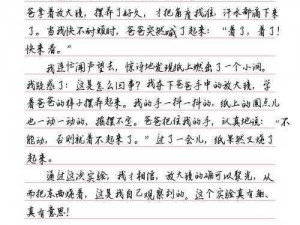 爸拿着放大镜，摆弄了好久，才把角度找准，汗水都滴下来
了。当我快不耐烦时，爸爸突然喊了起来：“着了，着了！
快来看。”
我连忙闻声望去，惊讶地发现纸上燃出了一个小洞。
我疑惑了：这是怎么回事？我夺下爸爸手中的放大镜，学
着爸爸的样子摆弄起来。我的手一抖一抖的，纸上的圆点儿
也一动一动的，摆摆不定。爸爸把住我的手，认真地说：“不
能动，否则就着不起来了。”过了一会儿，纸果然又烧了
起来。
通过这次实验，我才相信，放大镜的确可以聚光，从
而把东西烧着，这是我自己观察到的。这个实验真有趣、
真有意思！